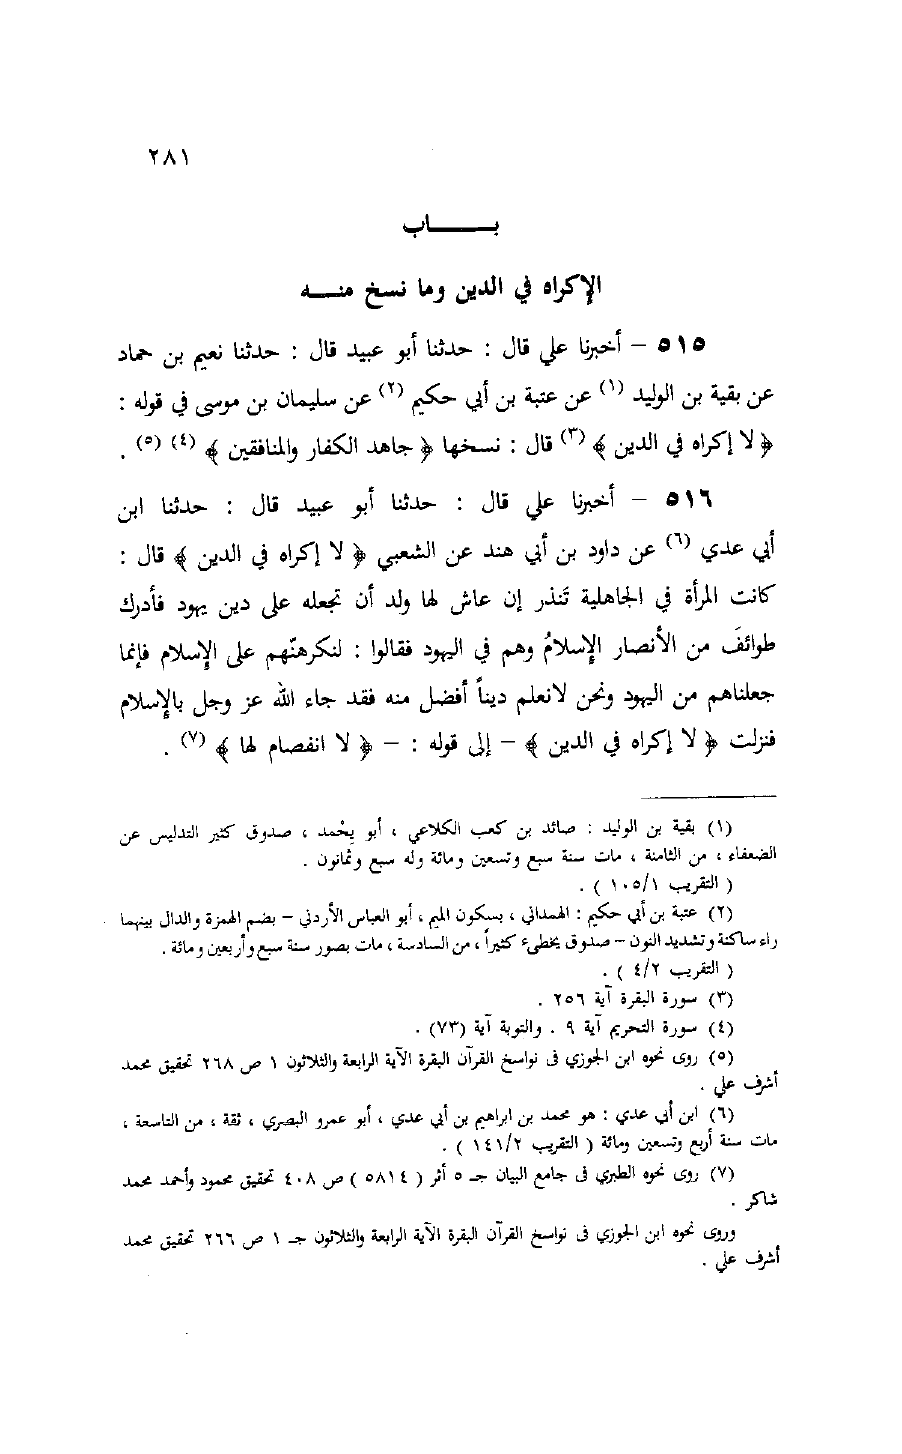 ٢٨١
بـــــاب
الإكراه في الدين وما نسخ منـــه
٥١٥ – أخبرنا علي قال : حدثنا أبو عبيد قال : حدثنا نعيم بن حماد
عن بقية بن الوليد (١) عن عتبة بن أبي حكيم (٢) عن سليمان بن موسى في قوله :
﴿ لا إكراه في الدين ﴾ (٣) قال : نسخها ﴿ جاهد الكفار والمنافقين ﴾ (٤) (٥) .
٥١٦ – أخبرنا علي قال : حدثنا أبو عبيد قال : حدثنا ابن
أبي عدي (٦) عن داود بن أبي هند عن الشعبي ﴿ لا إكراه في الدين ﴾ قال :
كانت المرأة في الجاهلية تَنذر إن عاش لها ولد أن تجعله على دين يهود فأدرك
طوائفَ من الأنصار الإسلامُ وهم في اليهود فقالوا : لنكرهنّهم على الإسلام فإنما
جعلناهم من اليهود ونحن لانعلم ديناً أفضل منه فقد جاء الله عز وجل بالإسلام
فنزلت ﴿ لا إكراه في الدين ﴾ – إلى قوله : – ﴿ لا انفصام لها ﴾ (٧) .
(١) بقية بن الوليد : صائد بن كعب الكلاعي ، أبو يحْمد ، صدوق كثير التدليس عن
الضعفاء ، من الثامنة ، مات سنة سبع وتسعين ومائة وله سبع وثمانون .
( التقريب ١٠٥/١ ) .
(٢) عتبة بن أبي حكيم : الهمداني ، بسكون الميم ، أبو العباس الأردني – بضم الهمزة والدال بينهما
راء ساكنة وتشديد النون – صدوق يخطىء كثيراً ، من السادسة ، مات بصور سنة سبع وأربعين ومائة .
( التقريب ٤/٢ ) .
(٣) سورة البقرة آية ٢٥٦ .
(٤) سورة التحريم آية ٩ . والتوبة آية (٧٣) .
(٥) روى نحوه ابن الجوزي فى نواسخ القرآن البقرة الآية الرابعة والثلاثون ١ ص ٢٦٨ تحقيق محمد
أشرف علي .
(٦) ابن أبي عدي : هو محمد بن ابراهيم بن أبي عدي ، أبو عمرو البصري ، ثقة ، من التاسعة ،
مات سنة أربع وتسعين ومائة ( التقريب ١٤١/٢ ) .
(٧) روى نحوه الطبري فى جامع البيان جـ ٥ أثر ( ٥٨١٤ ) ص ٤٠٨ تحقيق محمود وأحمد محمد
شاكر .
وروى نحوه ابن الجوزي فى نواسخ القرآن البقرة الآية الرابعة والثلاثون جـ ١ ص ٢٦٦ تحقيق محمد
أشرف علي .